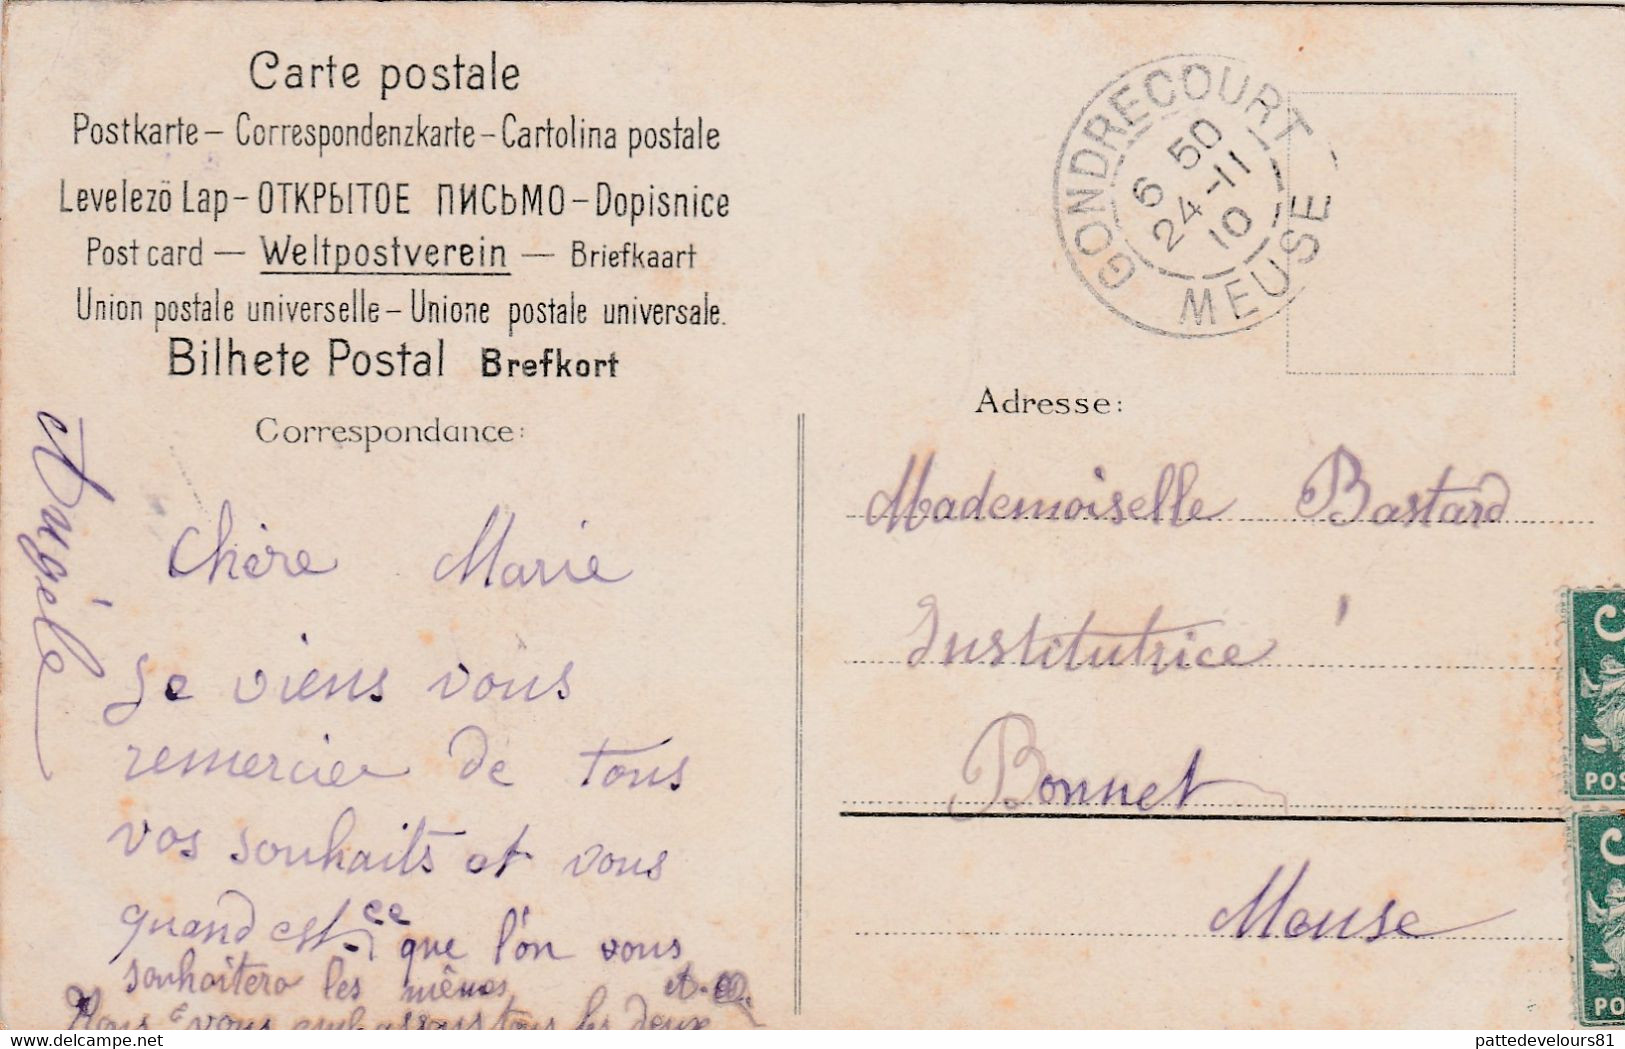 Carte postale
Postkarte – Correspondenzkarte – Cartolina postale
Levelezö Lap – ОТКРЫТОЕ ПИСЬМО – Dopisnice
Post card — Weltpostverein — Briefkaart
Union postale universelle – Unione postale universale.
Bilhete Postal Brefkort
Correspondance:
Chère Marie
Je viens vous
remercier de tous
vos souhaits et vous
quand est-ce que l'on vous
souhaitera les mêmes
Nous vous embrassons tous les deux
Angèle
GONDRECOURT
6 50
24-11
10
MEUSE
Adresse:
Mademoiselle Bastard
Institutrice
Bonnet
Meuse
POS
1
POS
1
www.delcampe.net
pattedevelours81